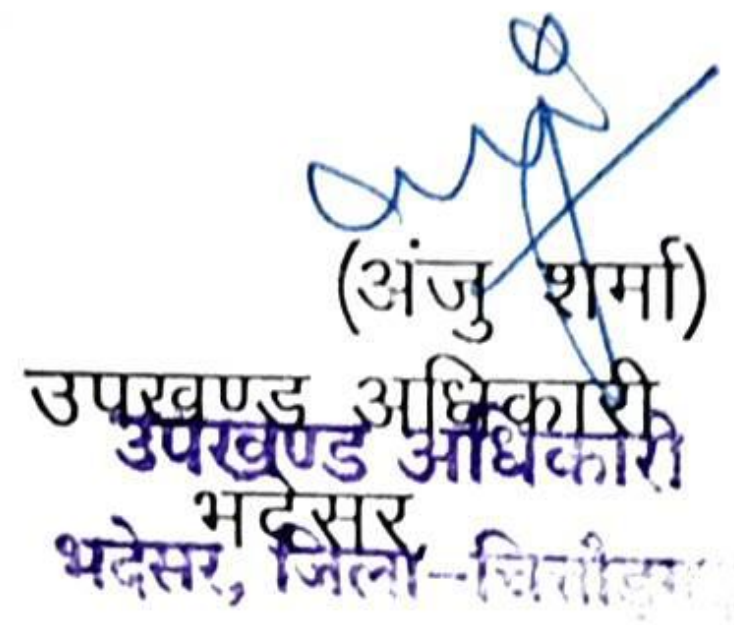 (अंजु शर्मा)
उपखण्ड अधिकारी
उपखण्ड अधिकारी
भदेसर
भदेसर, जिला-